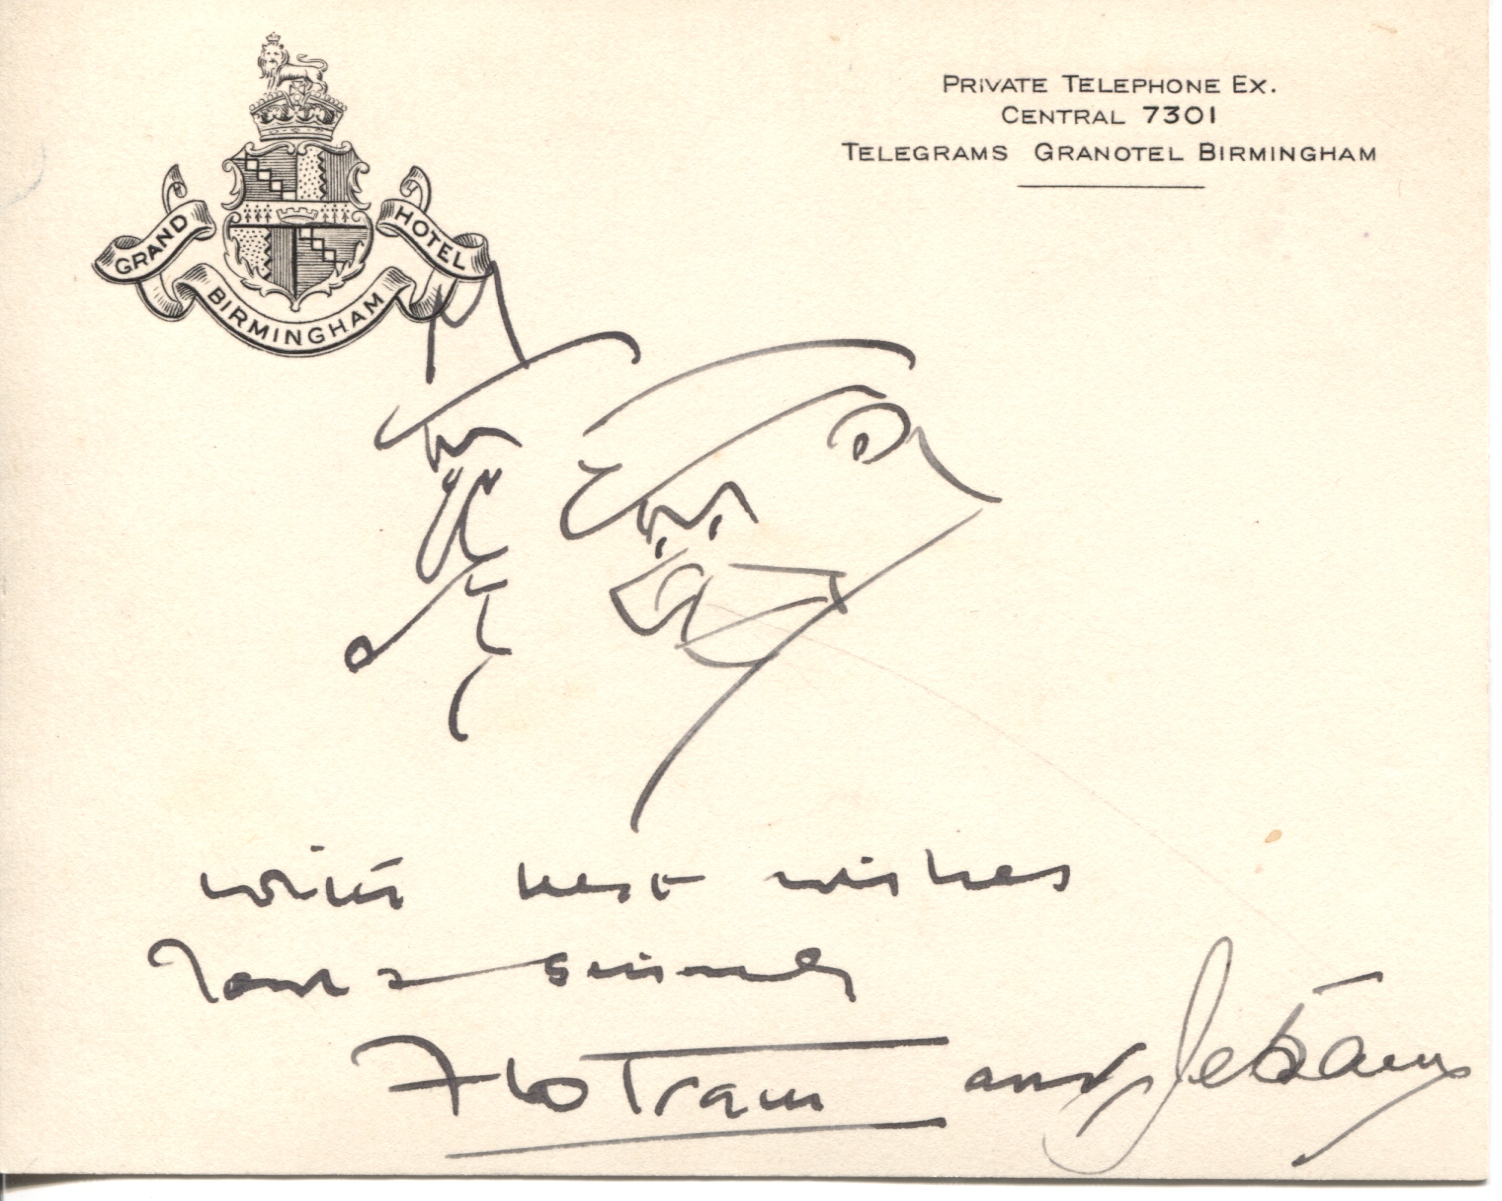 GRAND HOTEL
BIRMINGHAM
PRIVATE TELEPHONE EX.
CENTRAL 7301
TELEGRAMS GRANOTEL BIRMINGHAM
with best wishes
Yours sincerely
Flotsam and Jetsam